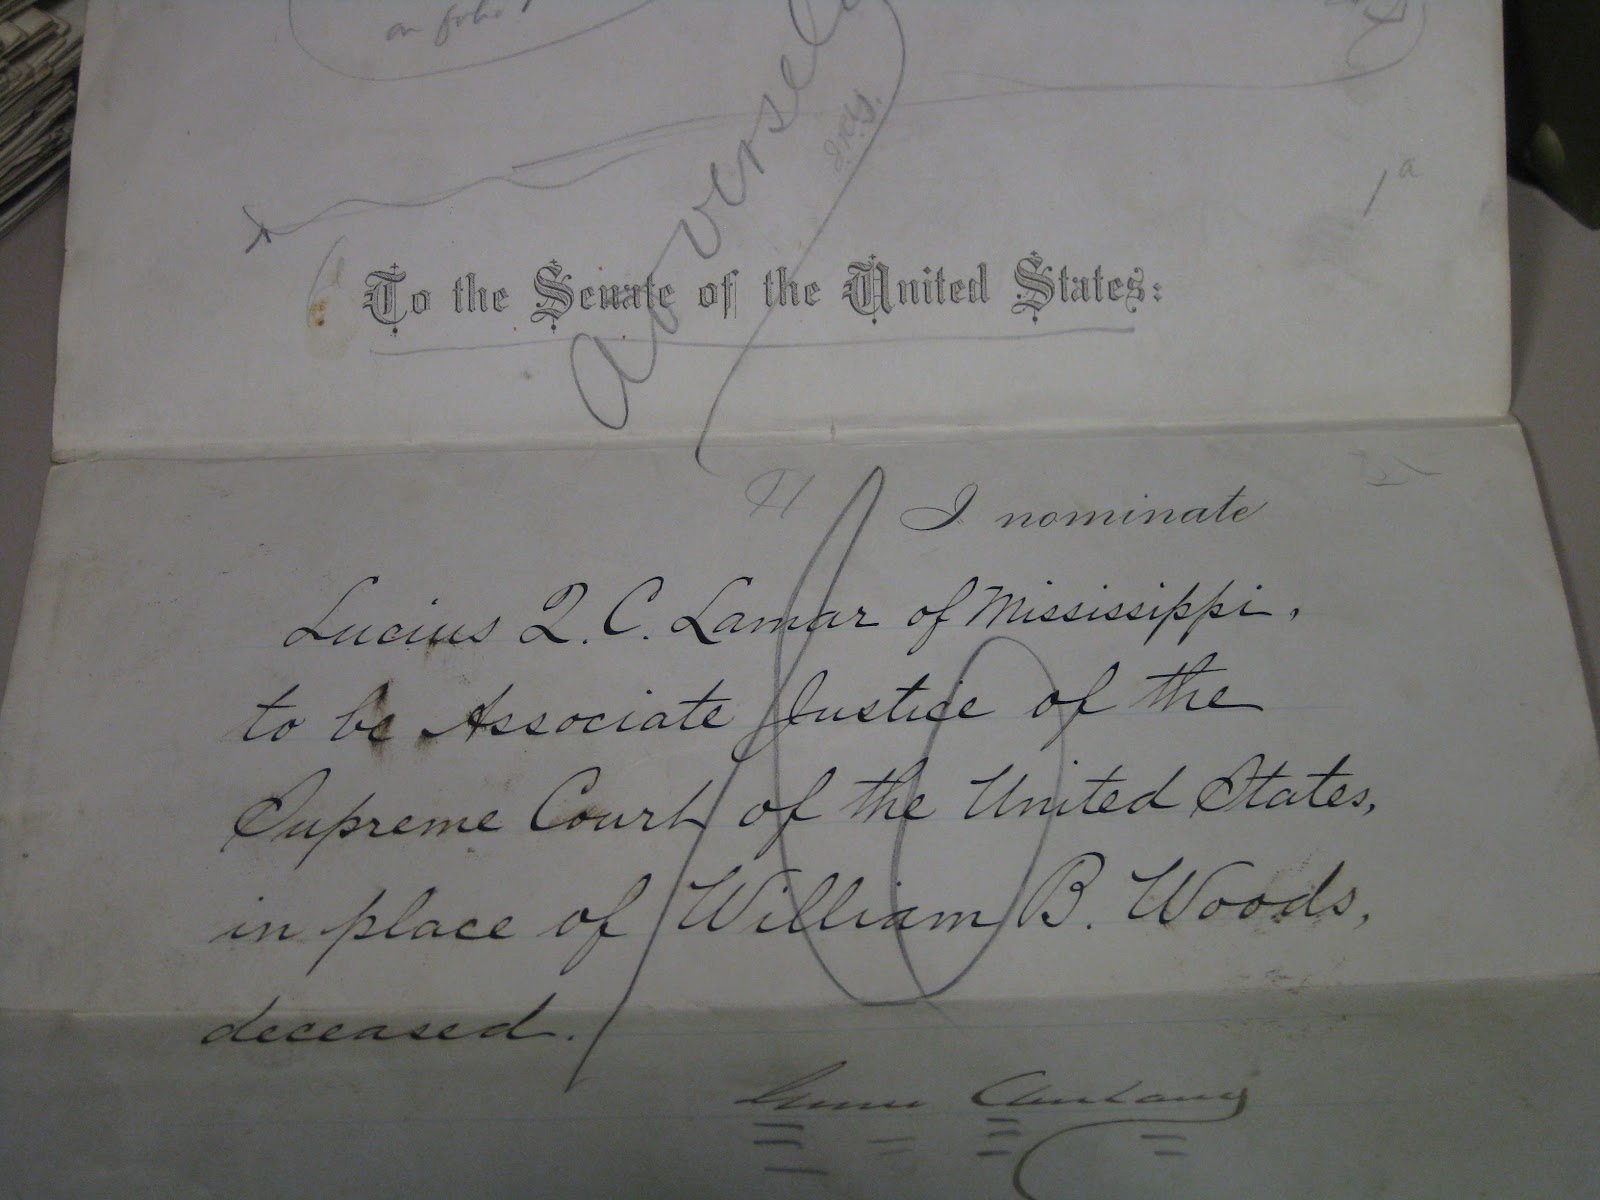 on folio
adversely
1a
To the Senate of the United States:
I nominate
Lucius Q. C. Lamar of Mississippi,
to be Associate Justice of the
Supreme Court of the United States,
in place of William B. Woods,
deceased.
Grover Cleveland